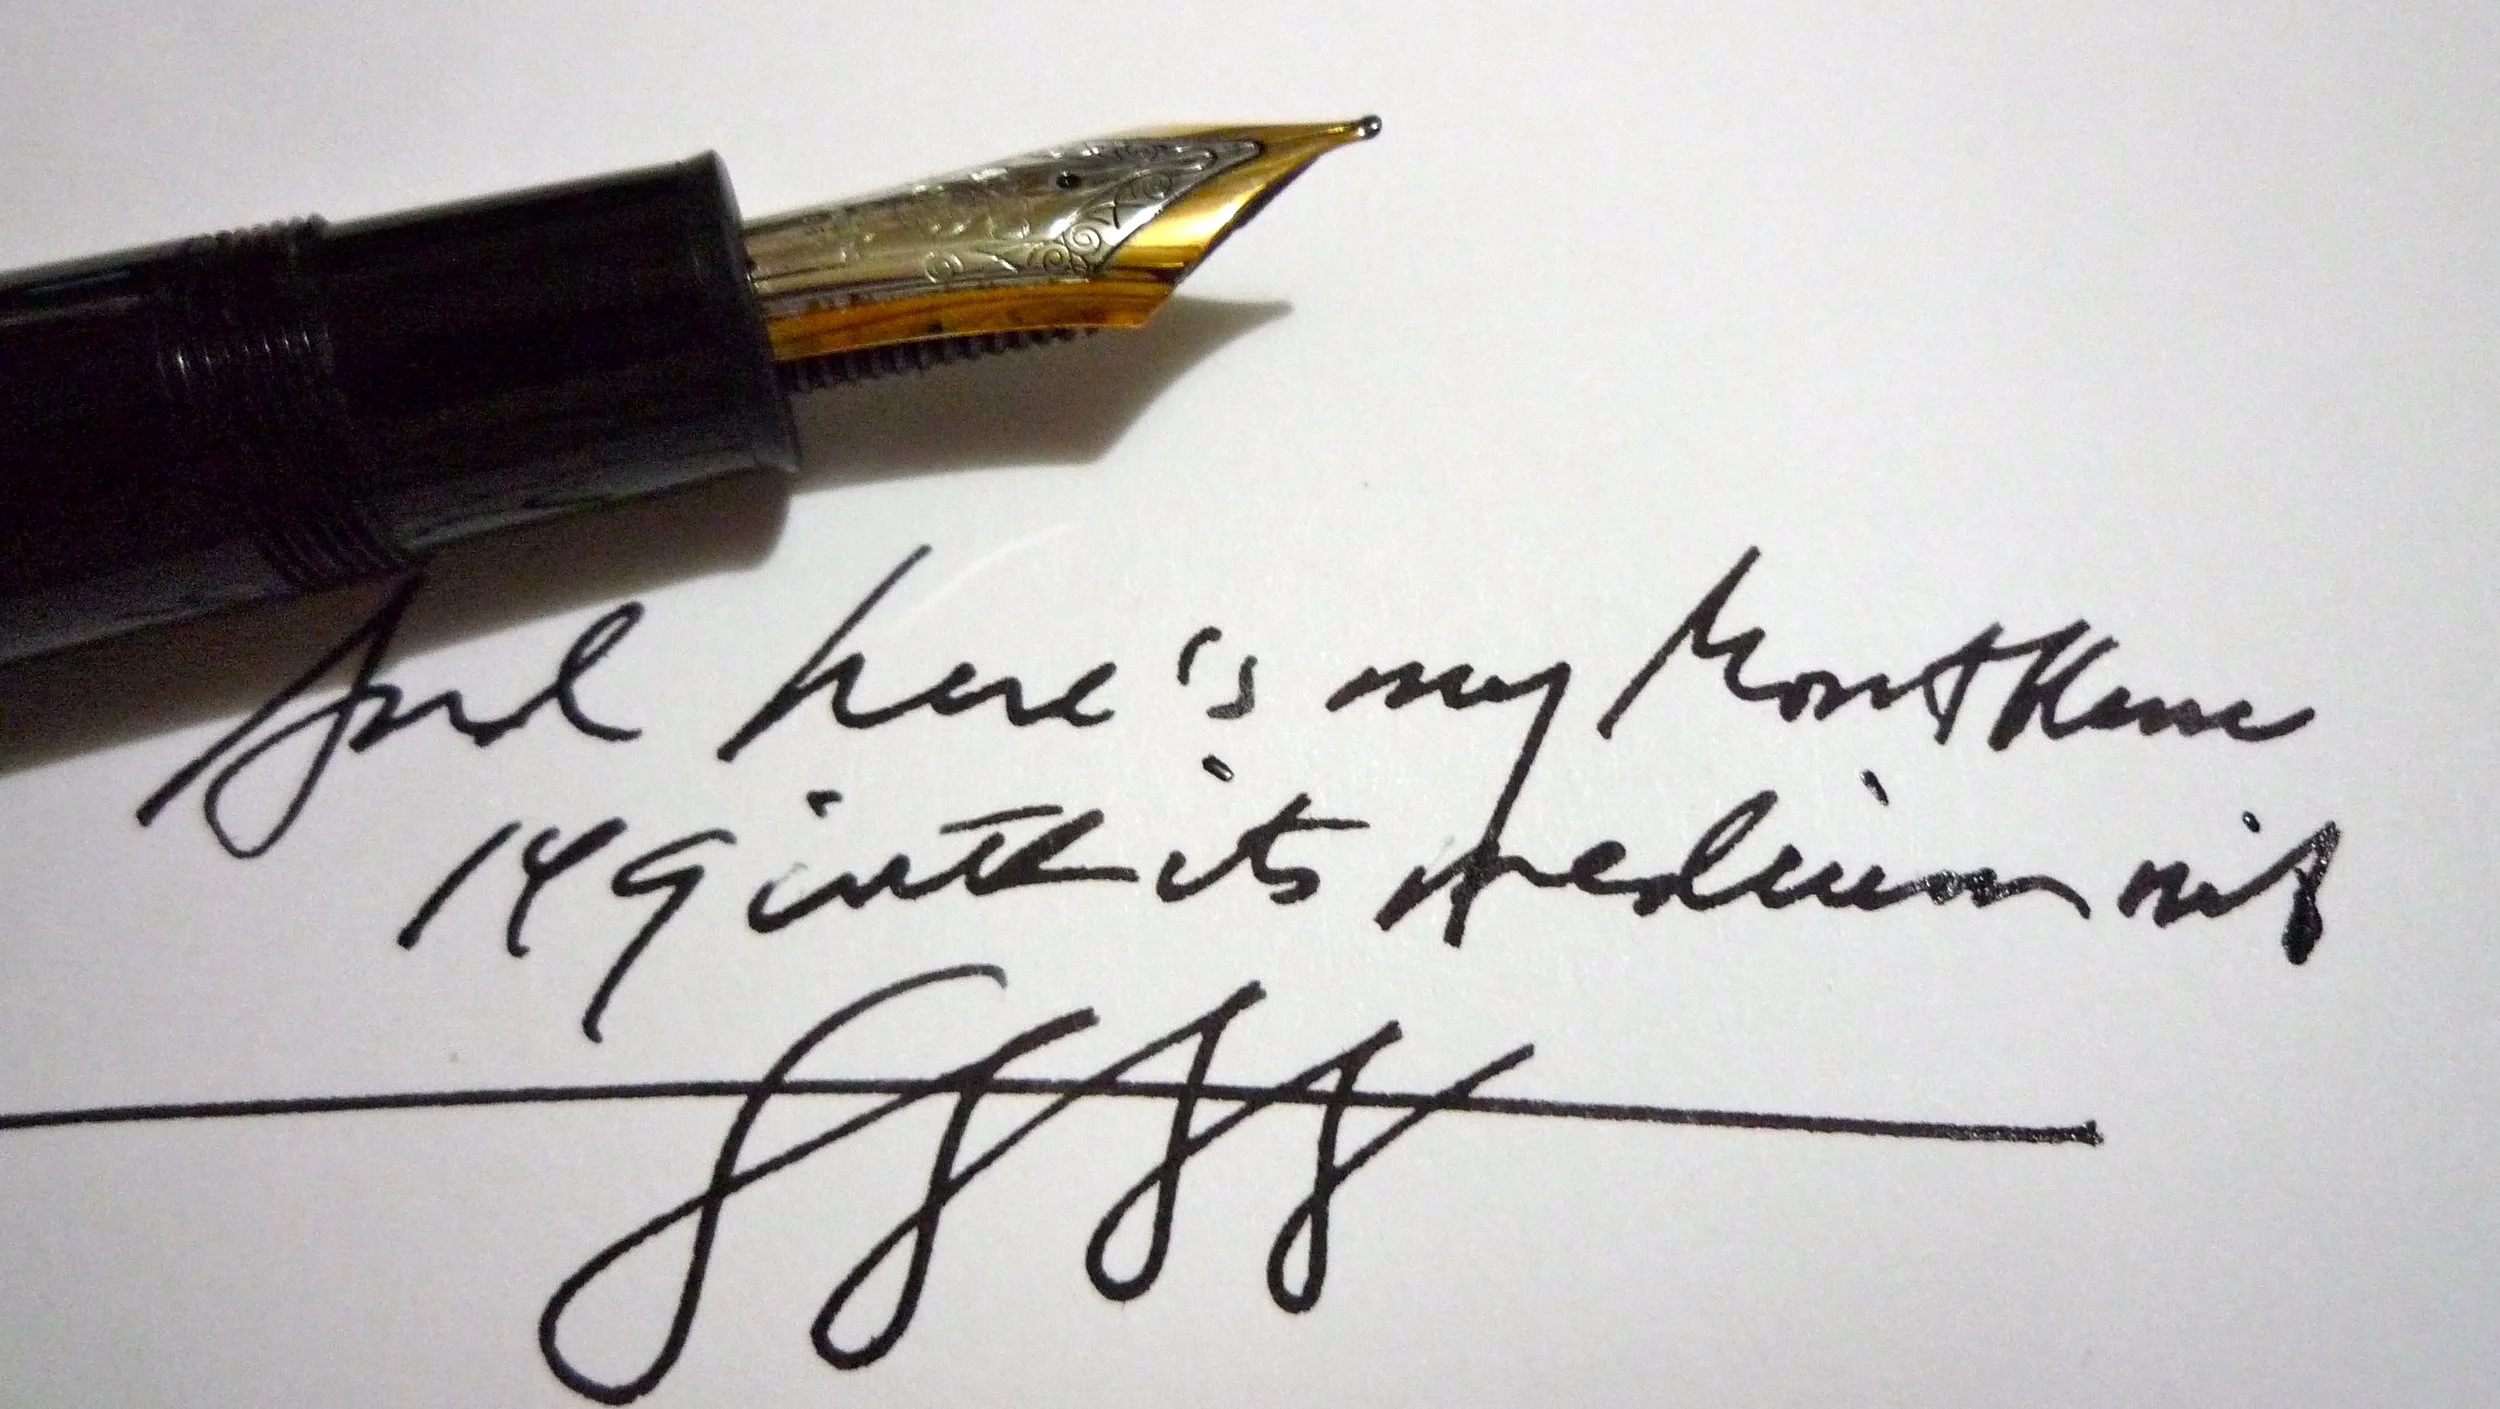 And here's my Montblanc
149 with its medium nib